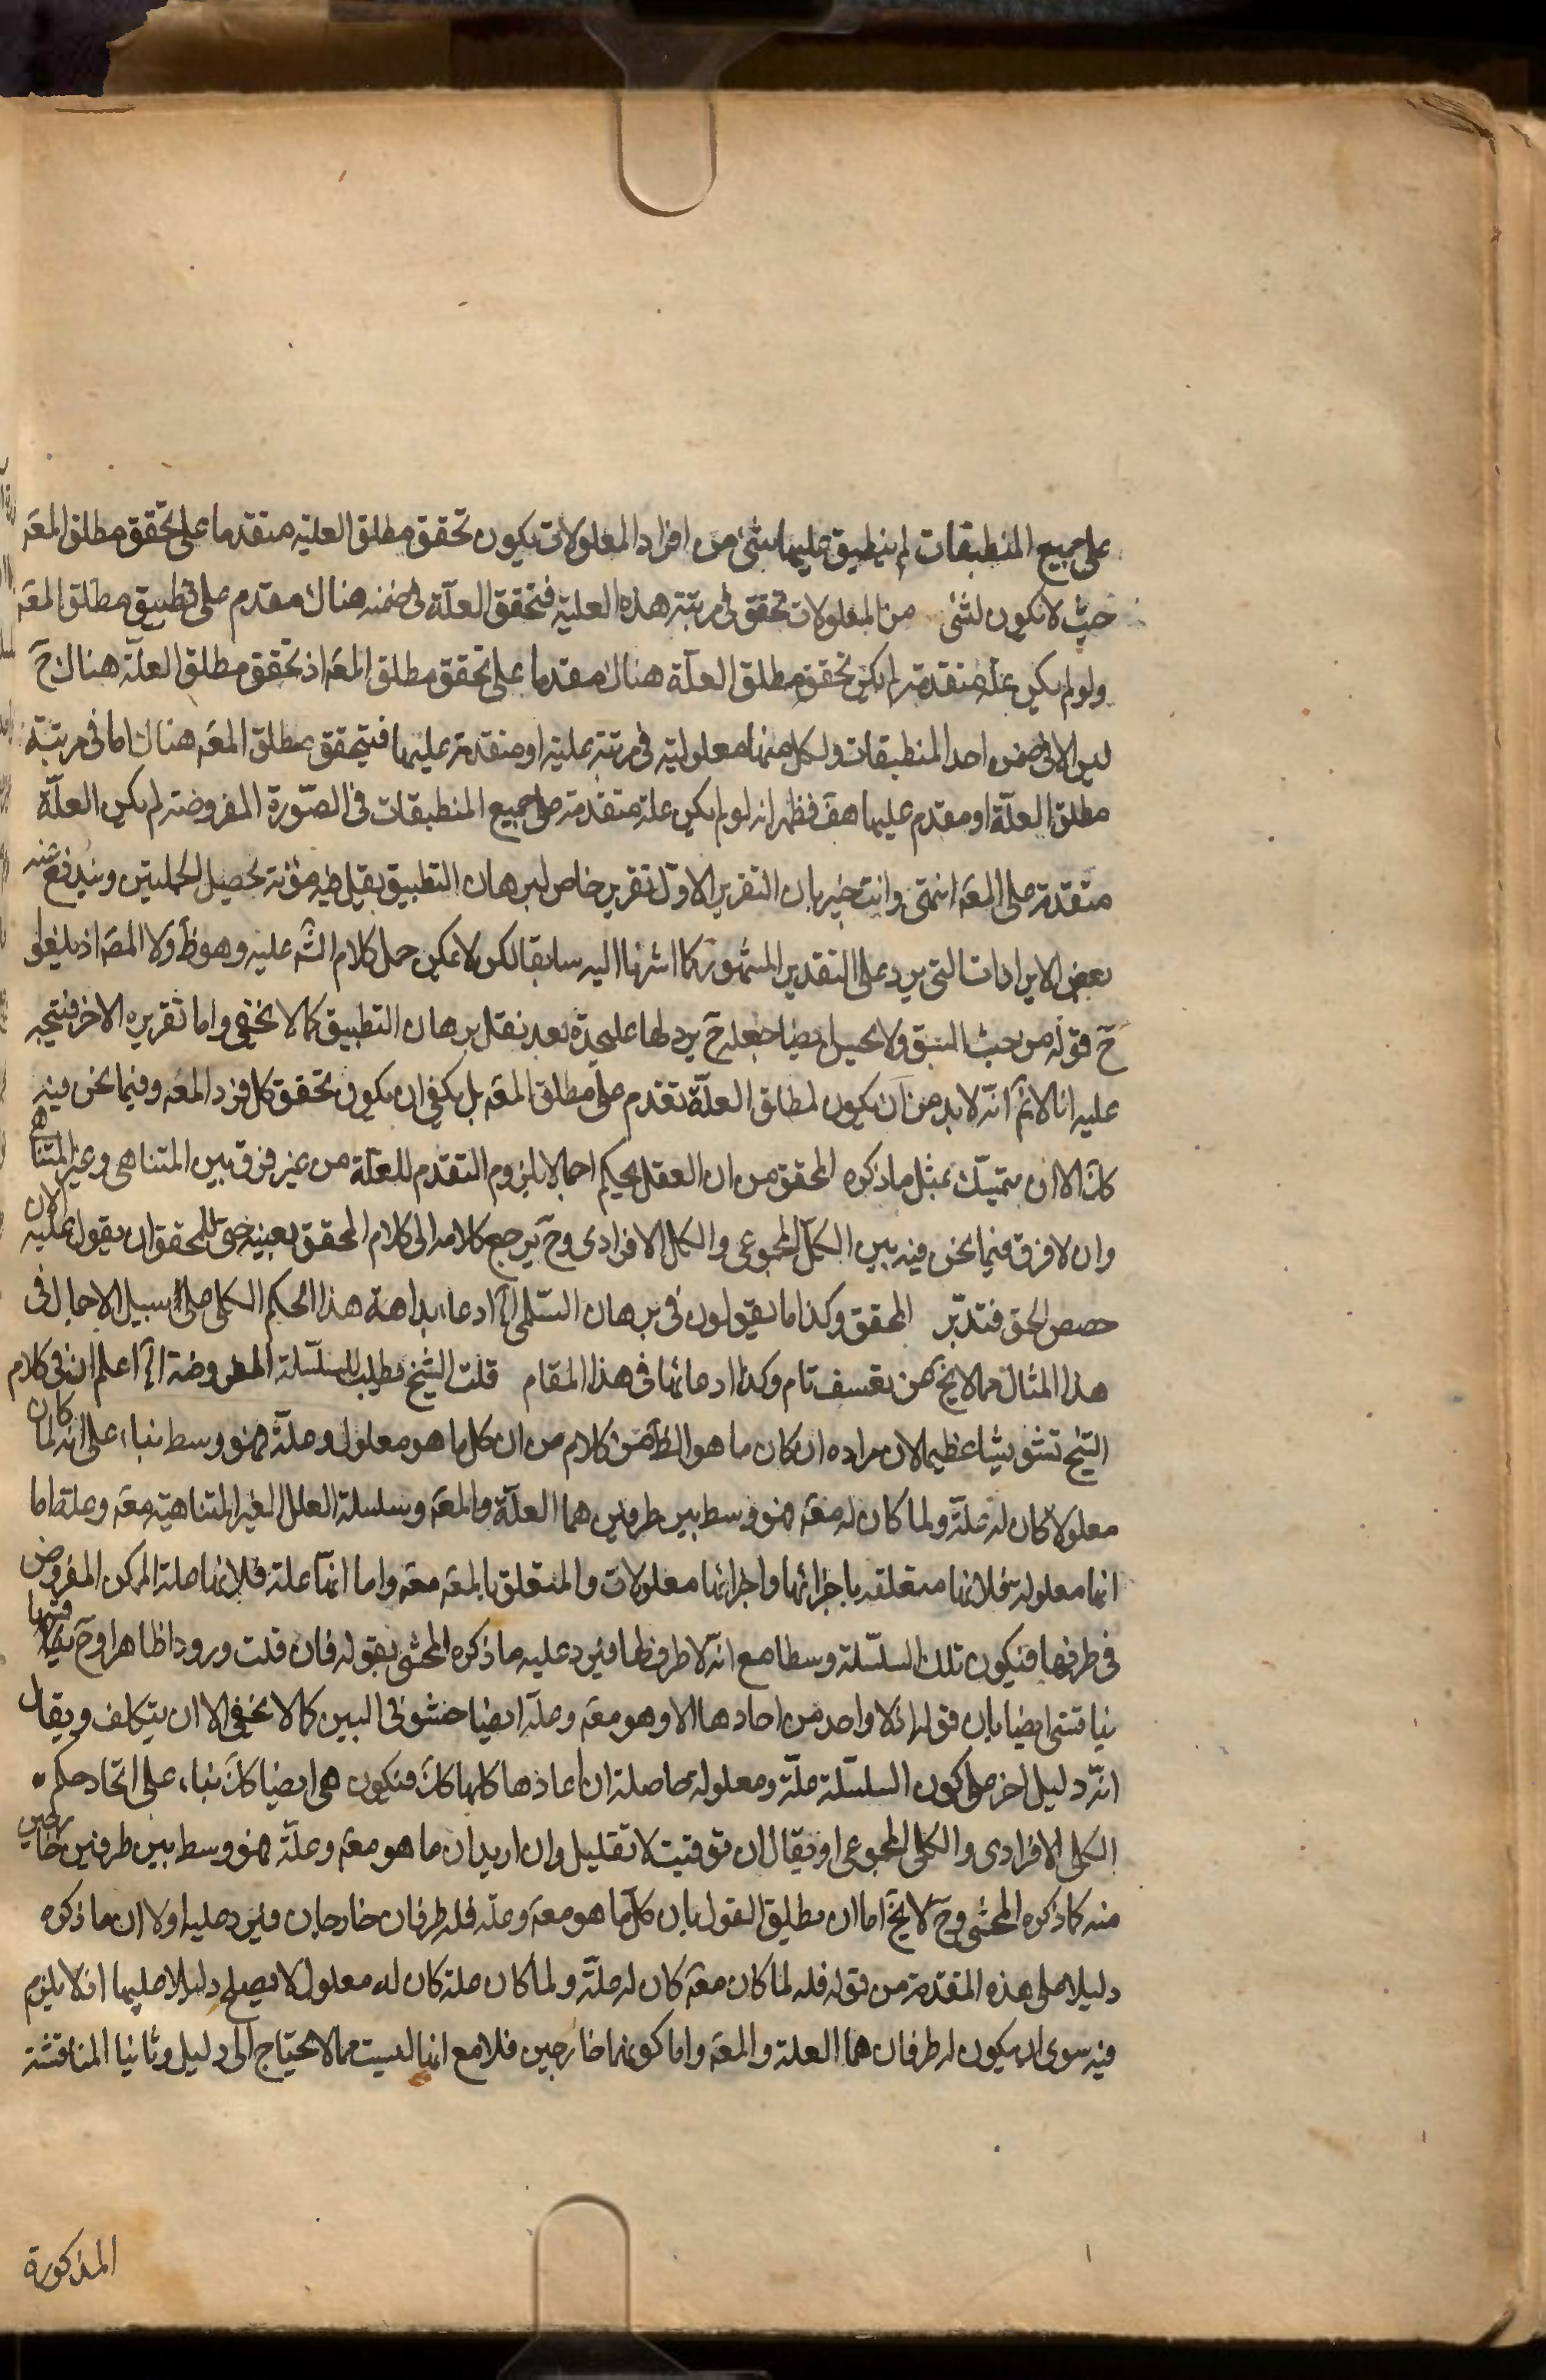 على جميع المنطبقات لم ينطبق عليها شئ من افراد المعلولات يكون تحقق مطلق العلية متقدما على تحقق مطلق المعه
حيث لا يكون لشئ من المعلولات تحقق فى مرتبة هذه العلية فتحقق العلّة فى ضمنه هناك مقدم على تطبيق مطلق المعه
ولو لم يكن علة متقدمة لم يكن تحقق مطلق العلّة هناك مقدما على تحقق مطلق المعه اذ تحقق مطلق العلّة هناك حَ
ليس الا فى ضمن احد المنطبقات ولكل منها معلولية فى مرتبة علية او متقدمة عليها فيتحقق مطلق المعه هناك اما فى مرتبة
مطلق العلّة او مقدم عليها هف فظهر انه لو لم يكن علة متقدمة على جميع المنطبقات فى الصّورة المفروضة لم يكن العلّة
متقدمة على المعه انتهى وانت خبير بان التقرير الاوّل تقرير خاص لبرهان التطبيق يقل فيه مؤنة تحصيل الجملتين ويندفع عنه
بعض الايرادات التى يرد على التقدير المشهور كما اشرنا اليه سابقا لكن لا يمكن حمل كلام الشه عليه وهو ظَ ولا المصَ اذ يلغو
حَ قوله من حيث السبق ولا يحسن ايضا جعله حَ بردلها عليحدة بعد نقل برهان التطبيق كما لا يخفى واما تقريره الاخر فيتجه
عليه انا لا نم انّه لا بد من ان يكون لمطلق العلّة تقدم على مطلق المعه بل يكفى ان يكون تحقق كل فرد المعه وفيما نحن فيه
كَك الا ان يتمسّك بمثل ما ذكره المحقق من ان العقل يحكم اجمالا بلزوم التقدّم للعلّة من غير فرق بين المتناهى وغير المتناهى
وان لا فرق فيما نحن فيه بين الكل المجموعى والكل الافرادى وحَ يرجع كلامه الى كلام المحقق بعينه حق للمحقق ان يقول عليه الان
حصص الحق فتدبّر المحقق وكذا ما يقولون فى برهان السّلمى الخ ادعاء بداهة هذا الحكم الكلى على سبيل الاجمال فى
هذا المثال مما لا يخ عن تعسف تام وكذا ادعائها فى هذا المقام قلت الشيخ يطلب السّلسلة المفروضة الخ اعلم ان فى كلام
الشيخ تشويشا عظيما لان مراده ان كان ما هو الظَ من كلام من ان كل ما هو معلول وعلّة فهو وسط بناء على انه لما كان
معلولا كان له علّة ولما كان له معه فهو وسط بين طرفين هما العلّة والمعه وسلسلة العلل الغير المتناهية معه وعلة اما
انها معلولة فلانها متعلقه باجزائها واجزائها معلولات والمتعلق بالمعه معه واما انها علة فلانها علة المركن المفروض
فى طرفها فيكون تلك السلسلة وسطا مع انّه لا طرف لها فيرد عليه ما ذكره المحشى بقوله فان قلت ورودا ظاهرا وحَ
يناقش ايضا بان قوله اذ لا واحد من احادها الا وهو معه وعلة ايضا حشو فى البين كما لا يخفى الا ان يتكلف ويقال
انّه دليل اخر على كون السلسلة علّة ومعلولة حاصلة ان احادها كلها كَك فيكون هى ايضا كَك بناء على اتحاد حكم
الكلى الافرادى والكلى المجموعى او يقال ان توقيت لا تقليل وان اريد ان ما هو معه وعلّة فهو وسط بين طرفين خارجين
منه كما ذكره المحشى وحَ لا يخ اما ان يطلق القول بان كل ما هو معه وعلّة فله طرفان خارجان فيرد عليه اولا ان ما ذكره
دليلا على هذه المقدمة من قوله فله لما كان معه كان له علّة ولما كان علة كان له معلول لا يصلح دليلا عليها اذ لا يلزم
فيه سوى ان يكون له طرفان هما العلة والمعه واما كونهما خارجين فلا مع انها ليست مما لا يحتاج الى دليل وثانيا المناقشة
المذكورة